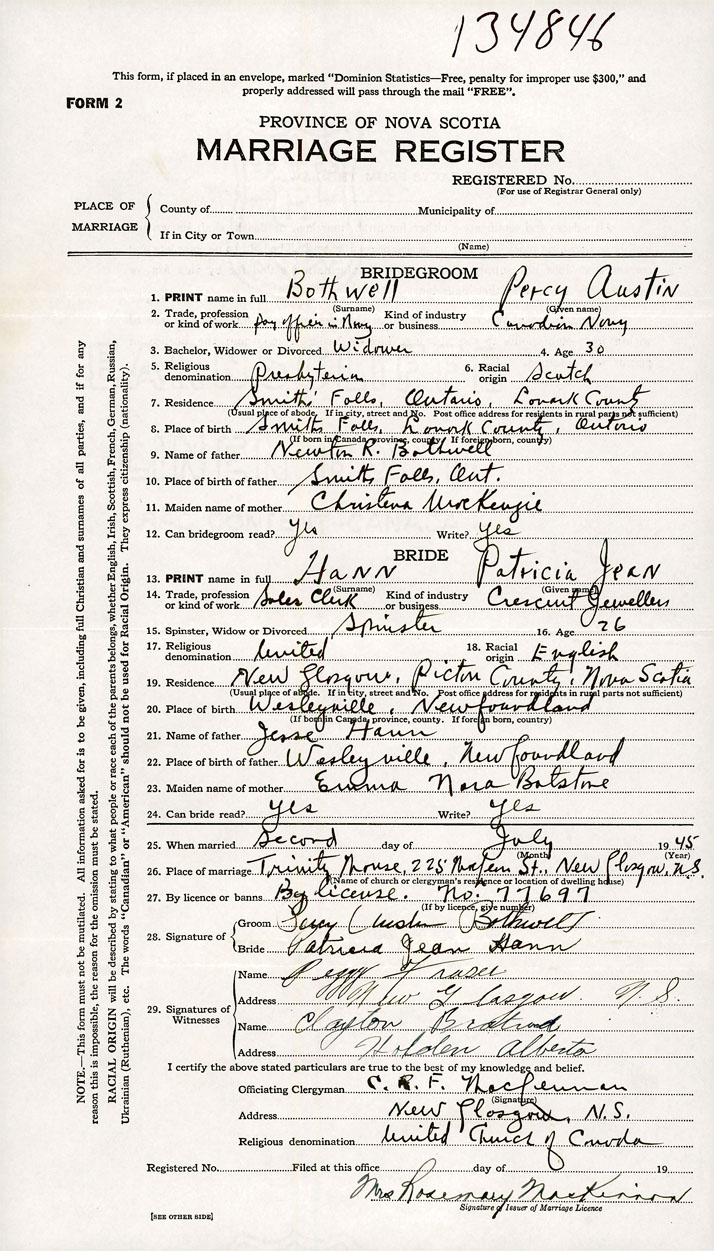 134846
This form, if placed in an envelope, marked "Dominion Statistics—Free, penalty for improper use $300," and
properly addressed will pass through the mail "FREE".
FORM 2
PROVINCE OF NOVA SCOTIA
MARRIAGE REGISTER
REGISTERED No.
(For use of Registrar General only)
PLACE OF MARRIAGE
County of Municipality of
If in City or Town
(Name)
BRIDEGROOM
1. PRINT name in full Bothwell Percy Austin
(Surname) (Given name)
2. Trade, profession or kind of work Pay officer in Navy Kind of industry or business Canadian Navy
3. Bachelor, Widower or Divorced Widower 4. Age 30
5. Religious denomination Presbyterian 6. Racial origin Scotch
7. Residence Smiths' Falls, Ontario, Lanark County
(Usual place of abode. If in city, street and No. Post office address for residents in rural parts not sufficient)
8. Place of birth Smiths Falls, Lanark County, Ontario
(If born in Canada, province, county. If foreign born, country)
9. Name of father Newton R. Bothwell
10. Place of birth of father Smiths Falls, Ont.
11. Maiden name of mother Christena MacKenzie
12. Can bridegroom read? yes Write? yes
BRIDE
13. PRINT name in full HANN Patricia Jean
(Surname) (Given name)
14. Trade, profession or kind of work Sales Clerk Kind of industry or business Crescent Jewellers
15. Spinster, Widow or Divorced Spinster 16. Age 26
17. Religious denomination United 18. Racial origin English
19. Residence New Glasgow, Pictou County, Nova Scotia
(Usual place of abode. If in city, street and No. Post office address for residents in rural parts not sufficient)
20. Place of birth Wesleyville, Newfoundland
(If born in Canada, province, county. If foreign born, country)
21. Name of father Jesse Hann
22. Place of birth of father Wesleyville, Newfoundland
23. Maiden name of mother Emma Nora Batstone
24. Can bride read? yes Write? yes
25. When married Second day of July 1945
(Month) (Year)
26. Place of marriage Trinity Manse, 225 St., New Glasgow, N.S.
(Name of church or clergyman's residence or location of dwelling house)
27. By licence or banns By license. No. 77697
(If by licence, give number)
28. Signature of
Groom Percy Austin Bothwell
Bride Patricia Jean Hann
29. Signatures of Witnesses
Name Peggy Fraser
Address New Glasgow. N.S.
Name Clayton
Address Holden Alberta
I certify the above stated particulars are true to the best of my knowledge and belief.
Officiating Clergyman C. R. F. MacLennan
(Signature)
Address New Glasgow, N.S.
Religious denomination United Church of Canada
Registered No. Filed at this office day of 19
Mrs Rosemary MacKinnon
Signature of Issuer of Marriage Licence
[SEE OTHER SIDE]
NOTE.—This form must not be mutilated. All information asked for is to be given, including full Christian and surnames of all parties, and if for any
reason this is impossible, the reason for the omission must be stated.
RACIAL ORIGIN will be described by stating to what people or race each of the parents belongs, whether English, Irish, Scottish, French, German, Russian,
Ukrainian (Ruthenian), etc. The words "Canadian" or "American" should not be used for Racial Origin. They express citizenship (nationality).